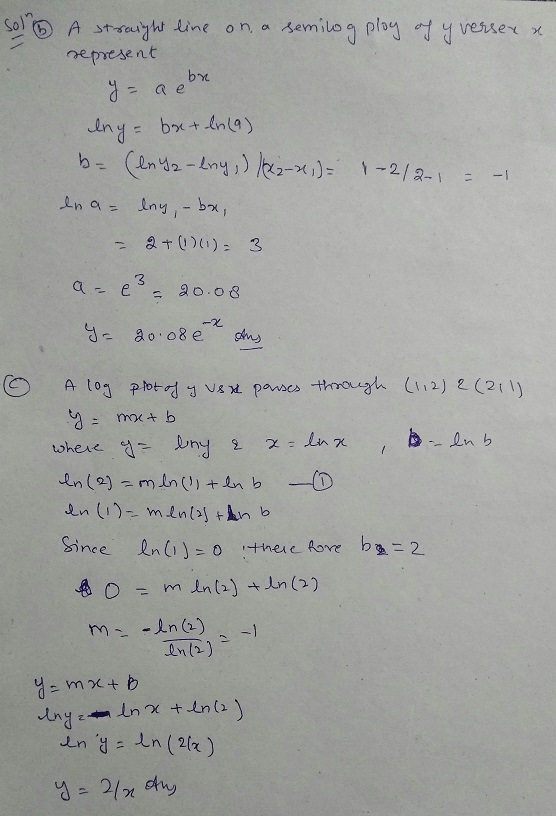 Solⁿ (b) A straight line on a semilog ploy of y verses x
represent
y = a e^bx
lny = bx + ln(a)
b = (lny2 - lny1) /(x2-x1) = 1-2/2-1 = -1
ln a = lny1 - bx1
= 2+(1)(1) = 3
a = e^3 = 20.08
y = 20.08 e^-x Ans
(c) A log plot of y vs x passes through (1,2) & (2,1)
y = mx + b
where y = lny & x = ln x , b = ln b
ln(2) = m ln(1) + ln b —(1)
ln(1) = m ln(2) + ln b
Since ln(1) = 0 , there fore b = 2
0 = m ln(2) + ln(2)
m = -ln(2)/ln(2) = -1
y = mx + b
lny = - ln x + ln(2)
ln y = ln(2/x)
y = 2/x Ans